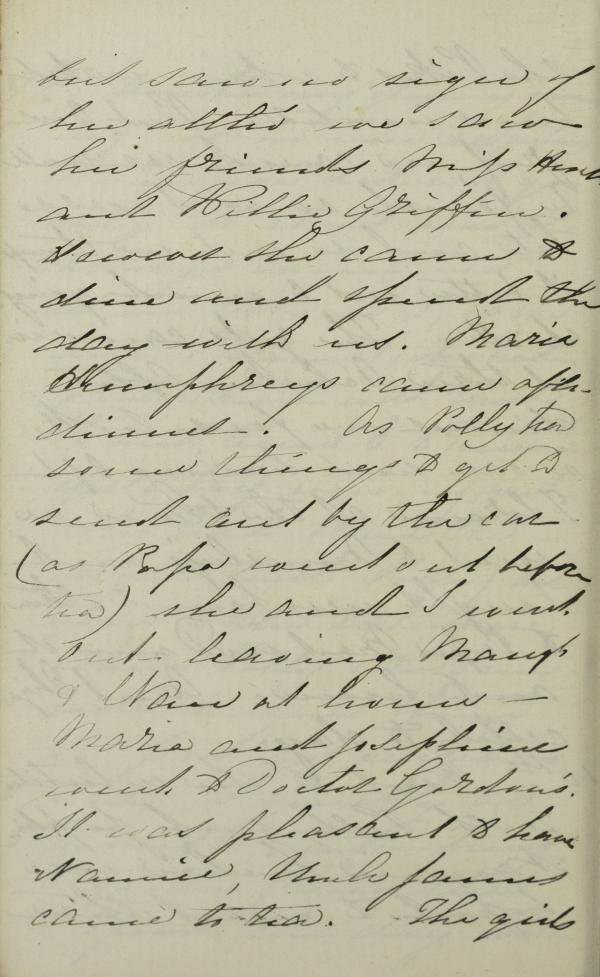 but saw no sign of
her altho' we saw
her friends Miss
and Willie Griffin.
However she came to
dine and spend the
day with us. Maria
Humphreys came after
dinner. As Polly had
some things to get to
send out by the car
(as Papa went out before
tea) she and I went
out leaving
& Nan at home —
Maria and Josephine
went to Doctor Gordon's.
It was pleasant to have
Nannie, Uncle James
came to tea. The girls